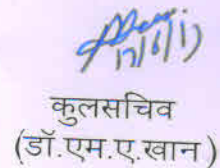 17/6/17
कुलसचिव
(डॉ.एम.ए.खान)